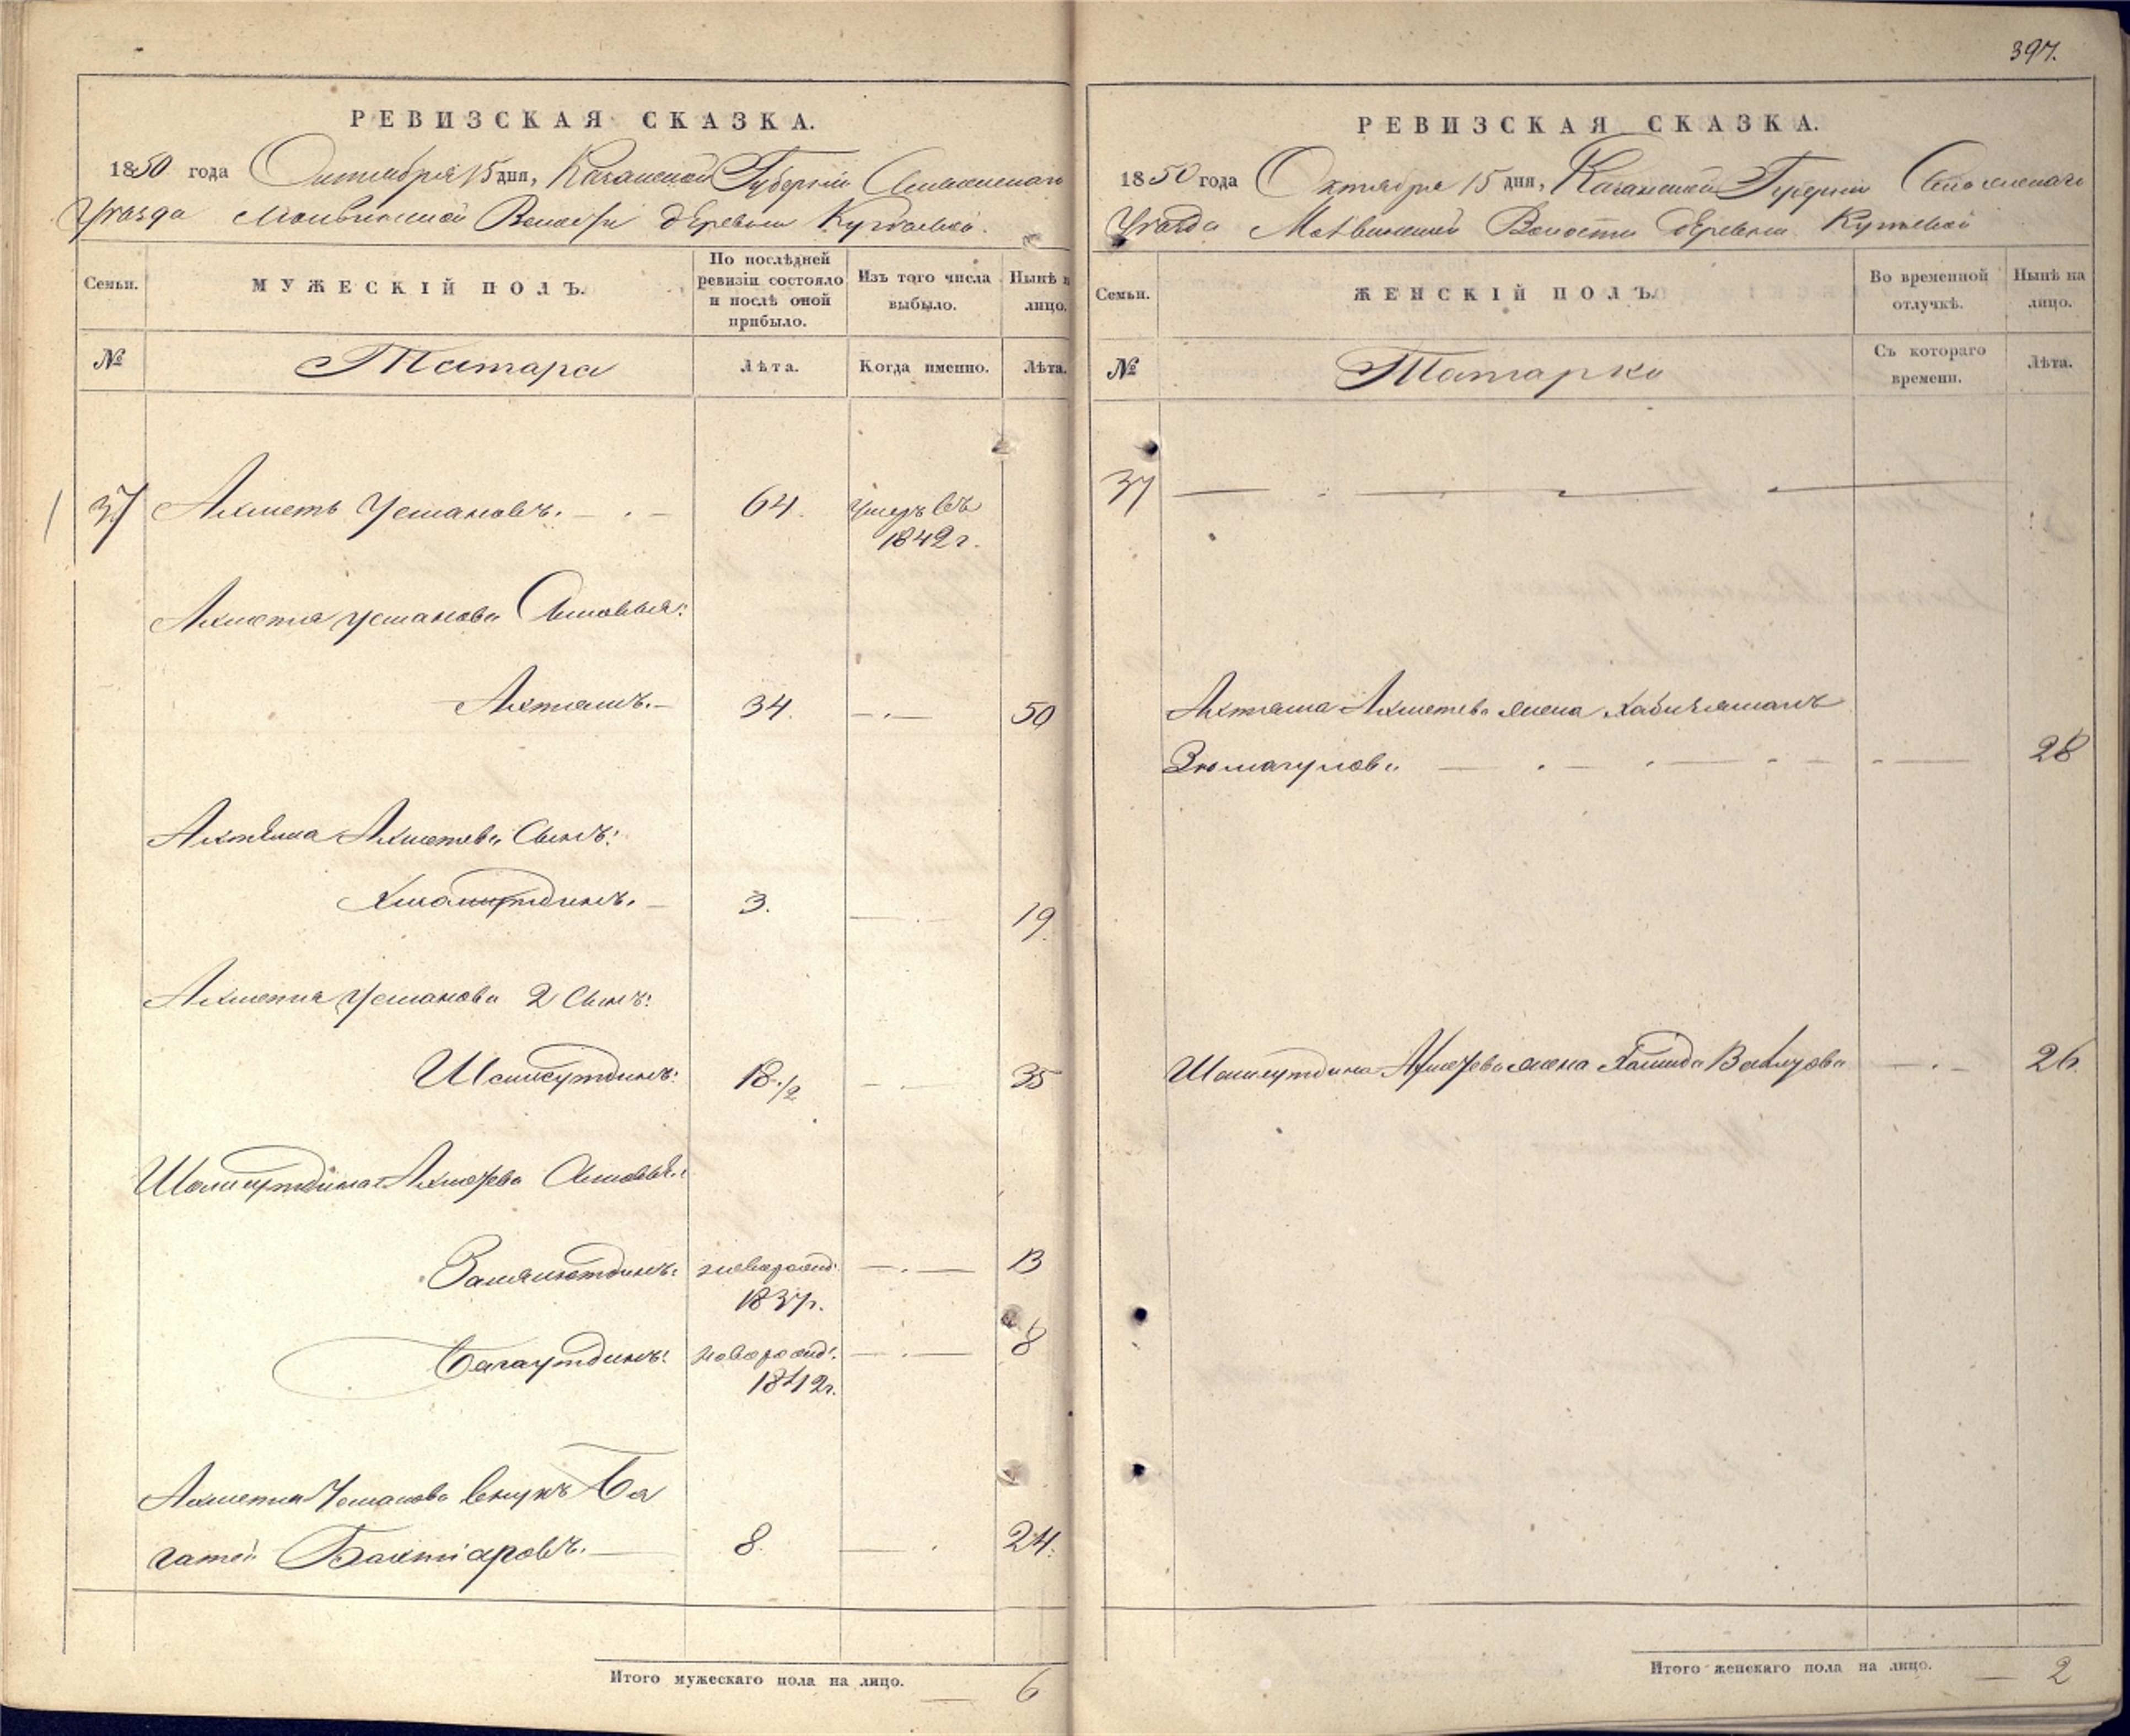 397.
РЕВИЗСКАЯ СКАЗКА.
1850 года Октября 15 дня, Казанской Губернии Спасскаго
Уезда Волости деревни
Семьи.
МУЖЕСКІЙ ПОЛЪ.
По послѣдней ревизіи состояло и послѣ оной прибыло.
Изъ того числа выбыло.
Нынѣ на лицо.
№
Татара
Лѣта.
Когда именно.
Лѣта.
37 Ахметъ Усмановъ. 64. умеръ въ
1842 г.
Ахметя Усманова Сыновья:
Ахтямъ. 34. 50
Ахтяма Ахметева Сынъ:
3. 19.
Ахметя Усманова 2 Сынъ:
Шамсутдинъ: 18 1/2 35
Шамсутдина Ахметева Сыновья:
Замалютдинъ: новорожд: 13
1837 г.
Багаутдинъ: новорожд: 8
1842 г.
Ахметя Усманова внукъ Ба
гатей Бахтіаровъ. 8. 24.
Итого мужескаго пола на лицо. 6
РЕВИЗСКАЯ СКАЗКА.
1850 года Октября 15 дня, Казанской Губерніи Спасскаго
Уезда Волости деревни
Семьи.
ЖЕНСКІЙ ПОЛЪ.
Во временной отлучкѣ.
Нынѣ на лицо.
№
Татарки
Съ котораго времени.
Лѣта.
37
Ахтяма Ахметева жена Хабибямалъ
Зюмагулова 28
Шамсутдина Ахметева жена Хамида 26.
Итого женскаго пола на лицо. 2